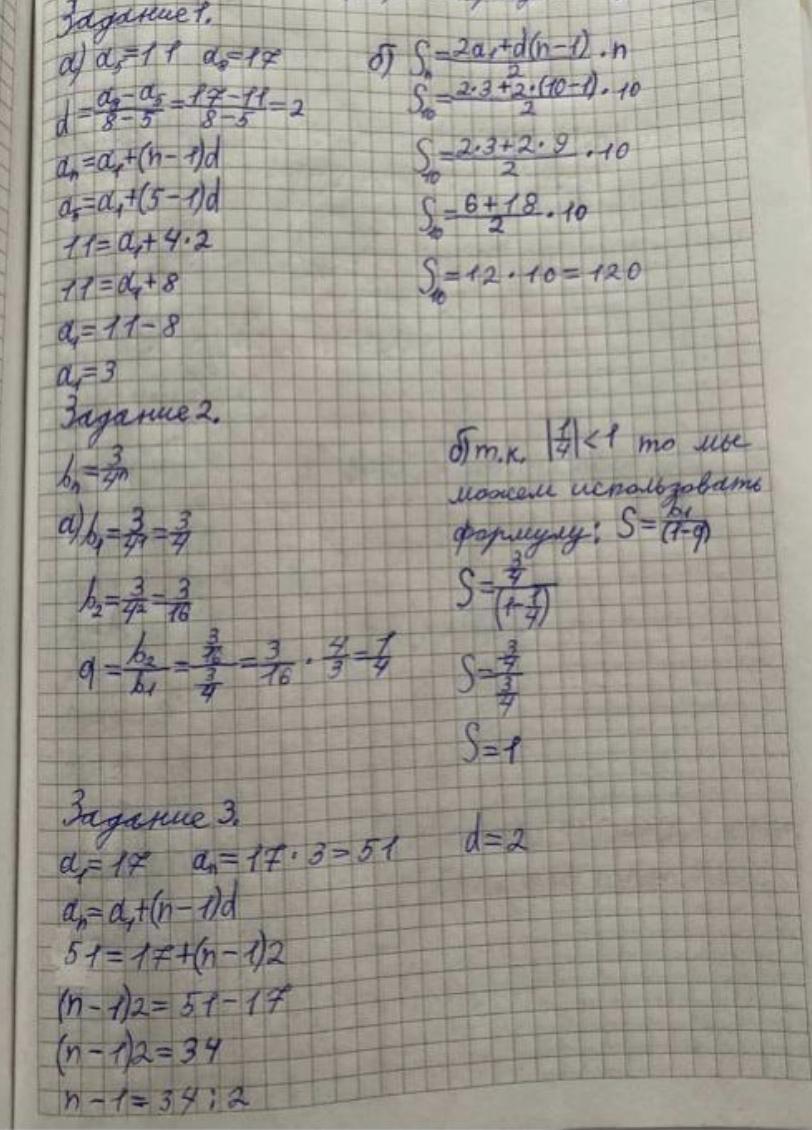 Задание 1.
а) a₅=11 a₈=17
d=(a₈-a₅)/(8-5)=(17-11)/(8-5)=2
aₙ=a₁+(n-1)d
a₅=a₁+(5-1)d
11=a₁+4·2
11=a₁+8
a₁=11-8
a₁=3
б) Sₙ=(2a₁+d(n-1))/2·n
S₁₀=(2·3+2·(10-1))/2·10
S₁₀=(2·3+2·9)/2·10
S₁₀=(6+18)/2·10
S₁₀=12·10=120
Задание 2.
bₙ=3/4ⁿ
а) b₁=3/4¹=3/4
b₂=3/4²=3/16
q=b₂/b₁=(3/16)/(3/4)=3/16·4/3=1/4
б) т.к. |1/4|<1 то мы
можем использовать
формулу: S=b₁/(1-q)
S=(3/4)/(1-1/4)
S=(3/4)/(3/4)
S=1
Задание 3.
a₁=17 aₙ=17·3=51 d=2
aₙ=a₁+(n-1)d
51=17+(n-1)2
(n-1)2=51-17
(n-1)2=34
n-1=34:2